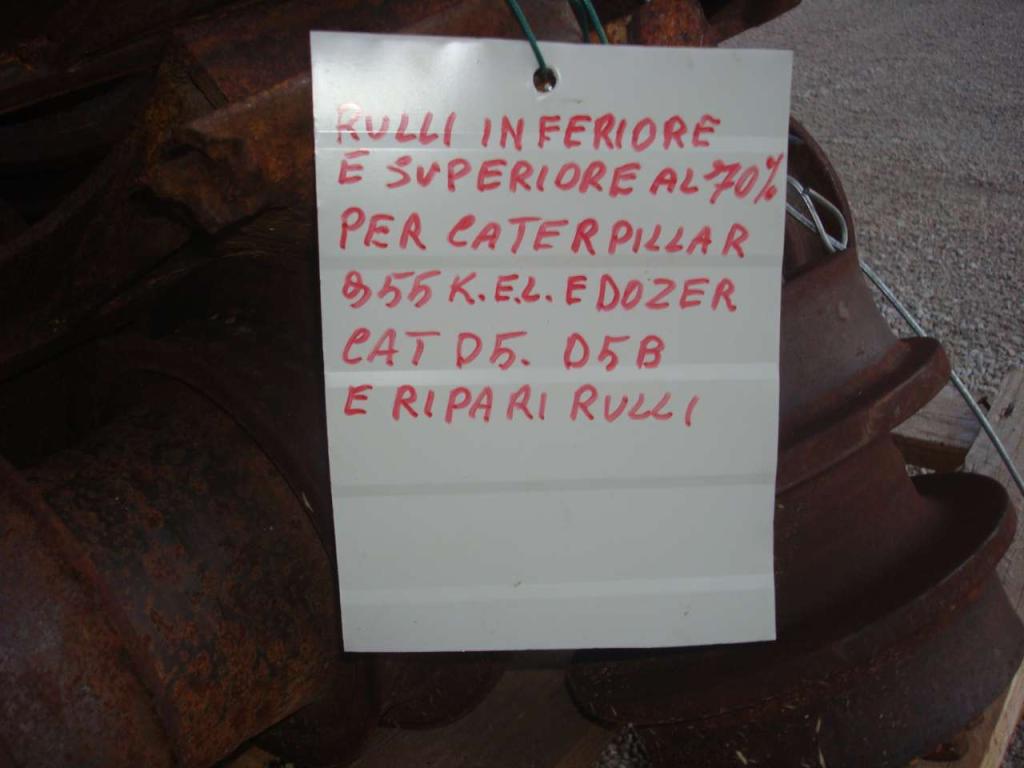 RULLI INFERIORE
E SUPERIORE AL 70%
PER CATERPILLAR
955 K.E.L. E DOZER
CAT D5. D5B
E RIPARI RULLI